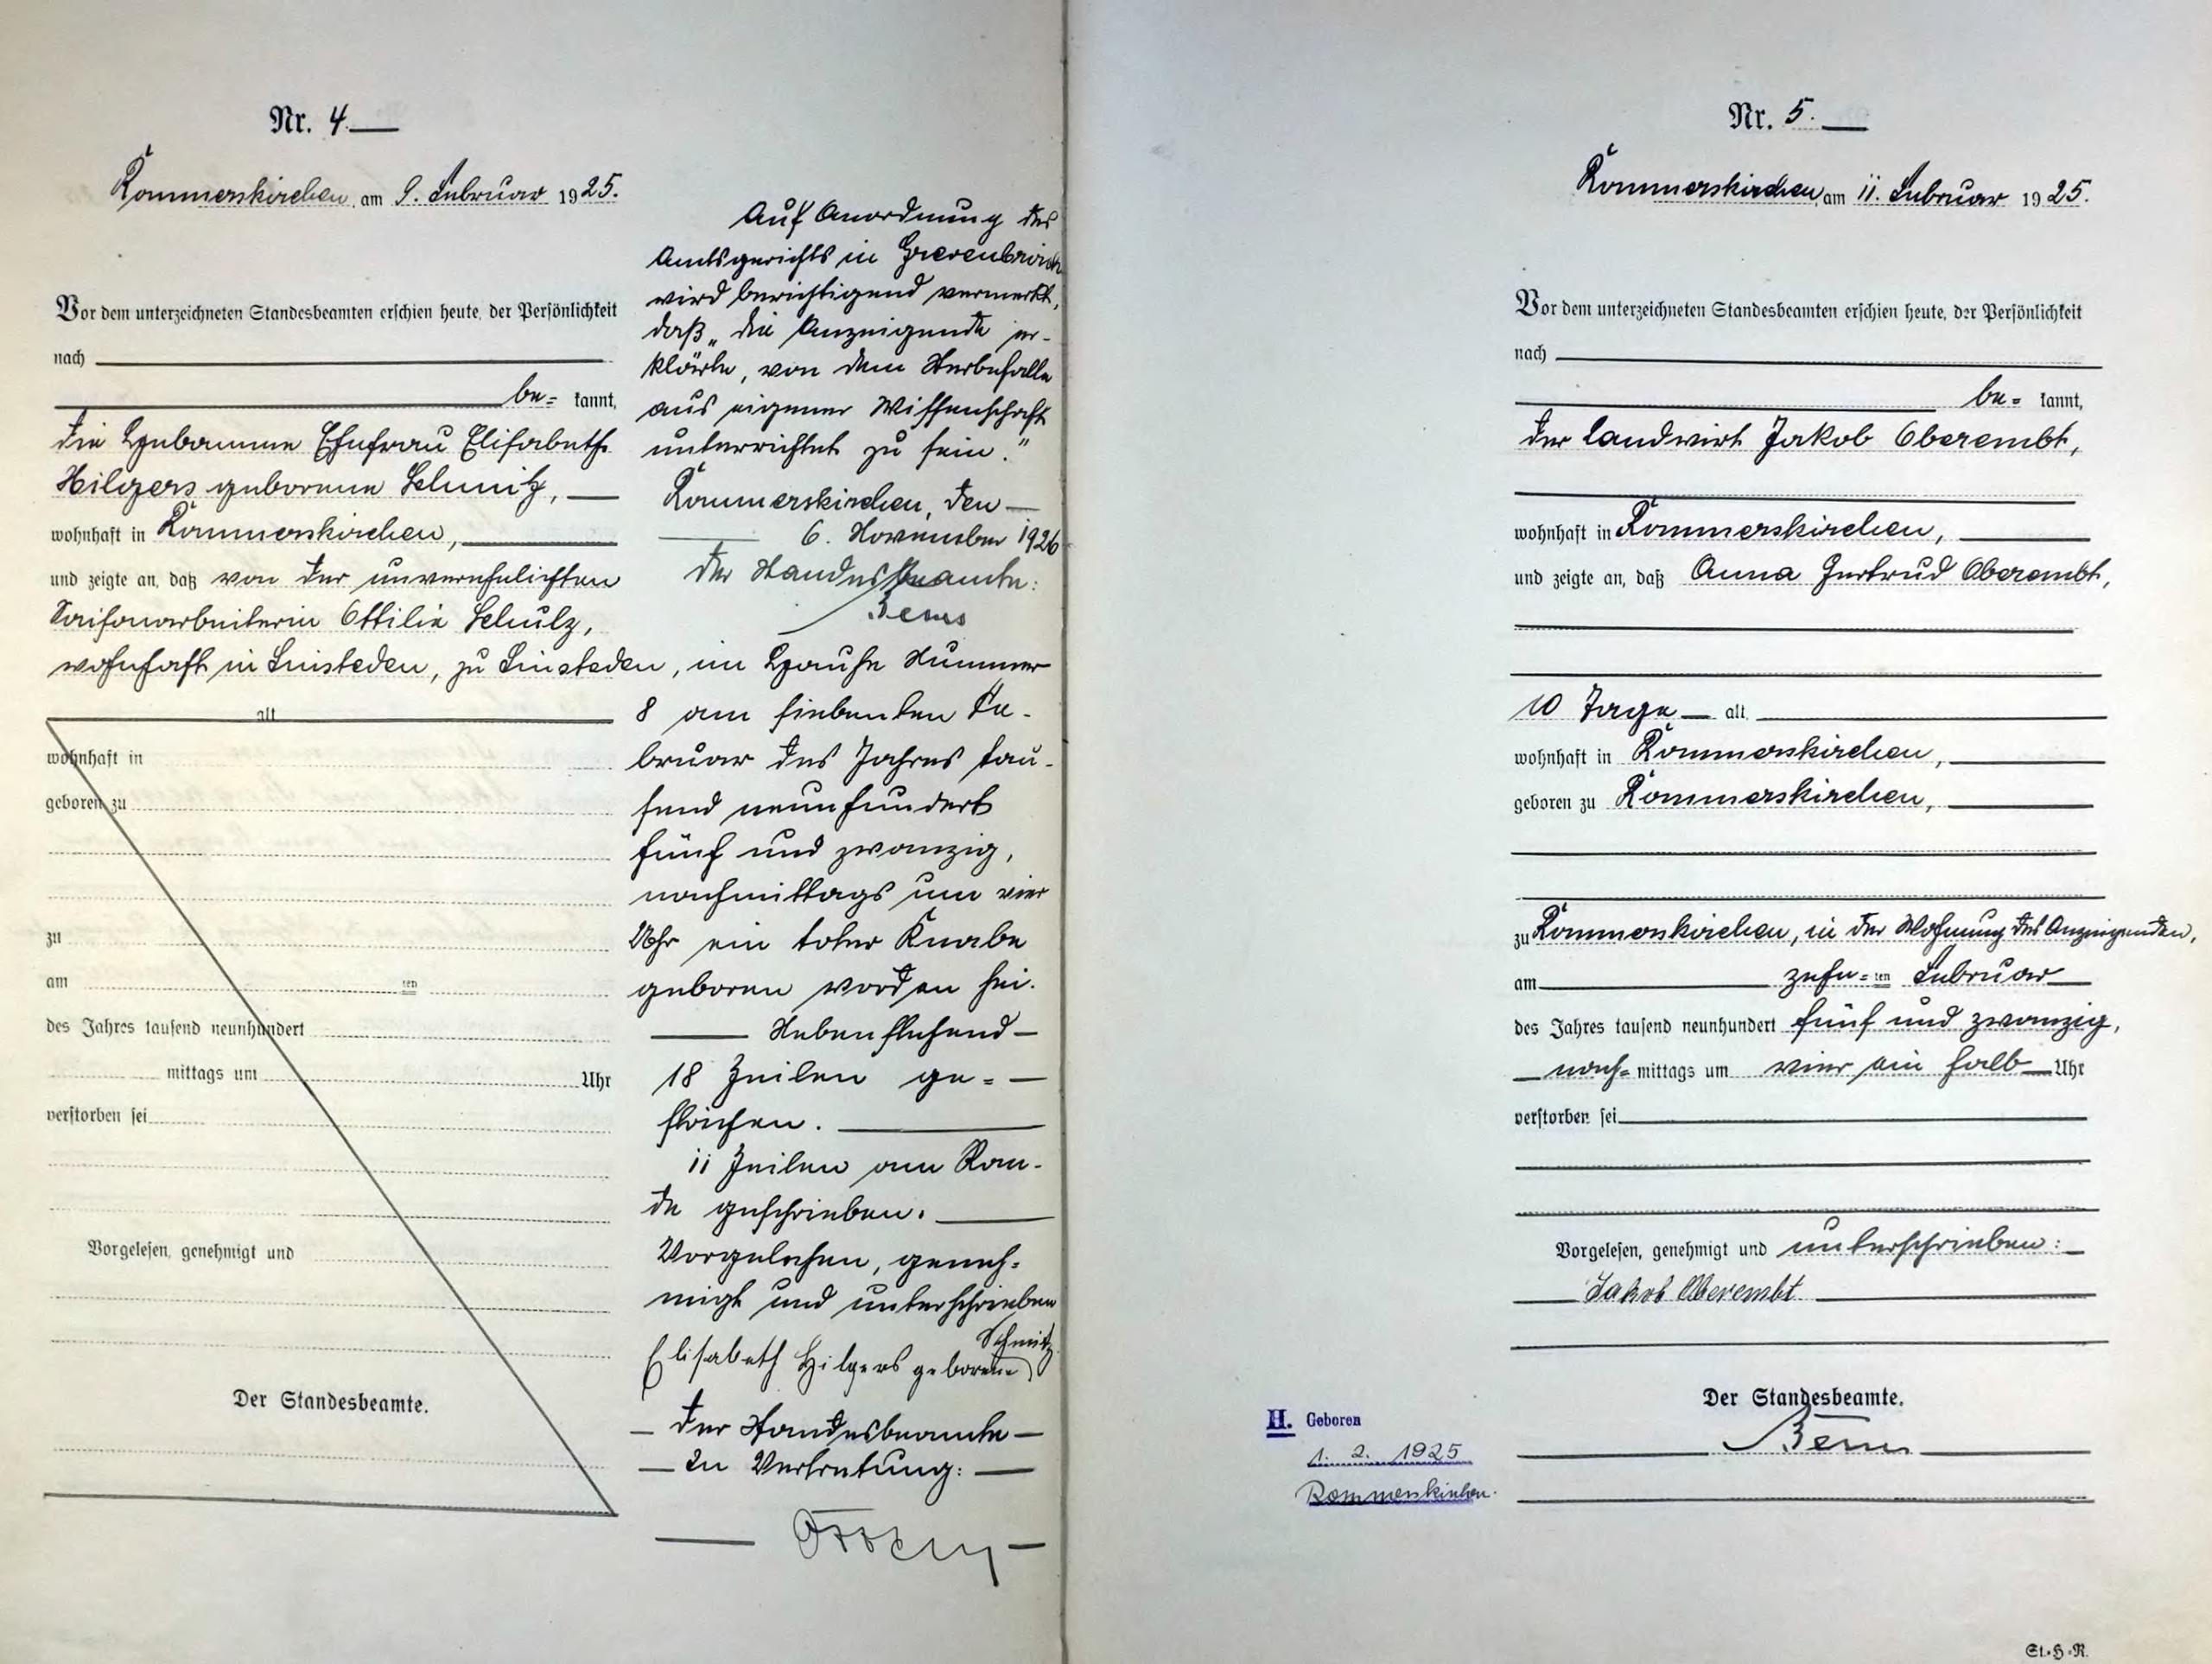 Nr. 4.
Rommerskirchen, am 9. Februar 1925.
Vor dem unterzeichneten Standesbeamten erschien heute, der Persönlichkeit
nach
be= kannt,
die Hebamme Ehefrau Elisabeth
Hilgers geborene Schmitz,
wohnhaft in Rommerskirchen,
und zeigte an, daß von der unverehelichten
Saisonarbeiterin Ottilie Schulz,
wohnhaft in Sinsteden, zu Sinsteden, im Hause Nummer
8 am siebenten Fe-
bruar des Jahres tau-
send neunhundert
fünf und zwanzig,
nachmittags um vier
Uhr ein toter Knabe
geboren worden sei.
Nebenstehend
18 Zeilen ge=
strichen.
11 Zeilen am Ran-
de geschrieben.
Vorgelesen, geneh-
migt und unterschrieben
Elisabeth Hilgers geborene Schmitz
Der Standesbeamte
In Vertretung:
alt
wohnhaft in
geboren zu
zu
am ten
des Jahres tausend neunhundert
mittags um Uhr
verstorben sei
Vorgelesen, genehmigt und
Der Standesbeamte.
Auf Anordnung des
Amtsgerichts in Grevenbroich
wird berichtigend vermerkt,
daß „die Anzeigende er-
klärte, von dem Sterbefalle
aus eigener Wissenschaft
unterrichtet zu sein."
Rommerskirchen, den
6. November 1926
Der Standesbeamte:
Bems
Nr. 5.
Rommerskirchen, am 11. Februar 1925.
Vor dem unterzeichneten Standesbeamten erschien heute, der Persönlichkeit
nach
be= kannt,
der Landwirt Jakob Oberembt,
wohnhaft in Rommerskirchen,
und zeigte an, daß Anna Gertrud Oberembt,
10 Tage alt,
wohnhaft in Rommerskirchen,
geboren zu Rommerskirchen,
zu Rommerskirchen, in der Wohnung des Anzeigenden,
am zehn= ten Februar
des Jahres tausend neunhundert fünf und zwanzig,
nach= mittags um vier ein halb Uhr
verstorben sei
Vorgelesen, genehmigt und unterschrieben:
Jakob Oberembt
Der Standesbeamte.
Bems
H. Geboren
1. 2. 1925
Rommerskirchen.
St.H.R.